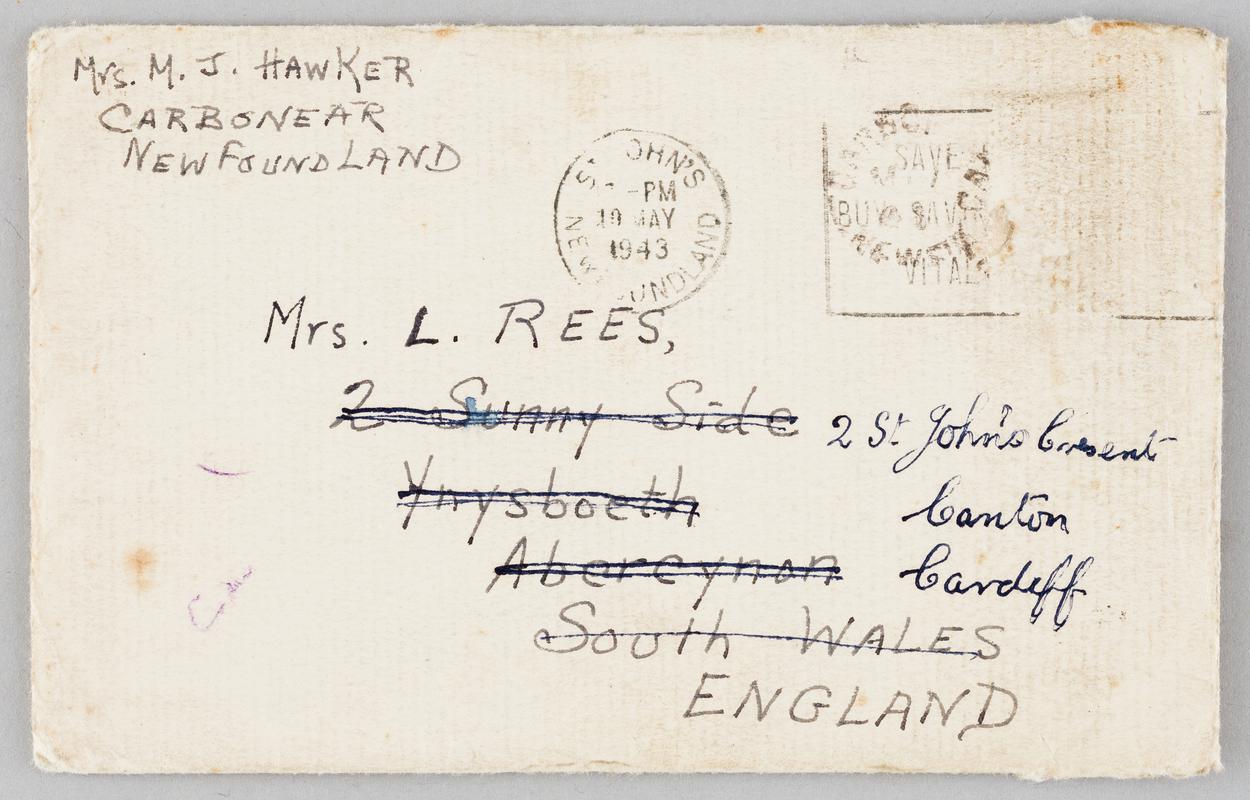 Mrs. M. J. HAWKER
CARBONEAR
NEWFOUNDLAND
ST JOHN'S
-PM
10 MAY
1943
NEWFOUNDLAND
SAVE
BUY
VITAL
Mrs. L. REES,
2 Sunny Side
2 St John's Cresent
Ynysboeth
Canton
Abercynon
Cardiff
South WALES
ENGLAND